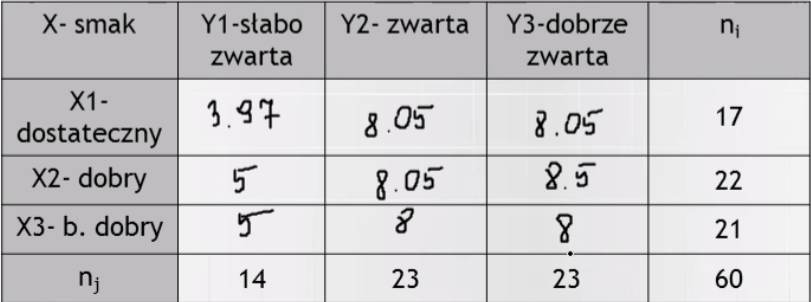 X- smak Y1-słabo zwarta Y2- zwarta Y3-dobrze zwarta ni
X1- dostateczny 3.97 8.05 8.05 17
X2- dobry 5 8.05 8.5 22
X3- b. dobry 5 8 8 21
nj 14 23 23 60